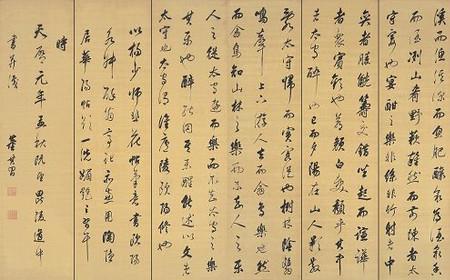 溪而漁溪深而魚肥釀泉為酒泉香
而酒洌山肴野蔌雜然而前陳者太
守宴也宴酣之樂非絲非竹射者中
弈者勝觥籌交錯坐起而諠譁
者衆賓歡也蒼顏白髮頹乎其中
者太守醉也已而夕陽在山人影散
亂太守歸而賓客從也樹林陰翳
鳴聲上下遊人去而禽鳥樂也然
而禽鳥知山林之樂而不知人之樂
人知從太守遊而樂而不知太守之樂
其樂也醉能同其樂醒能述以文者
太守也太守謂誰廬陵歐陽修也
以楊少師韭花帖筆意書歐陽
永叔醉翁亭記
居華陽帖一洗媚艷之習耳
時
天啓元年孟秋既望毘陵道中
書并識 董其昌